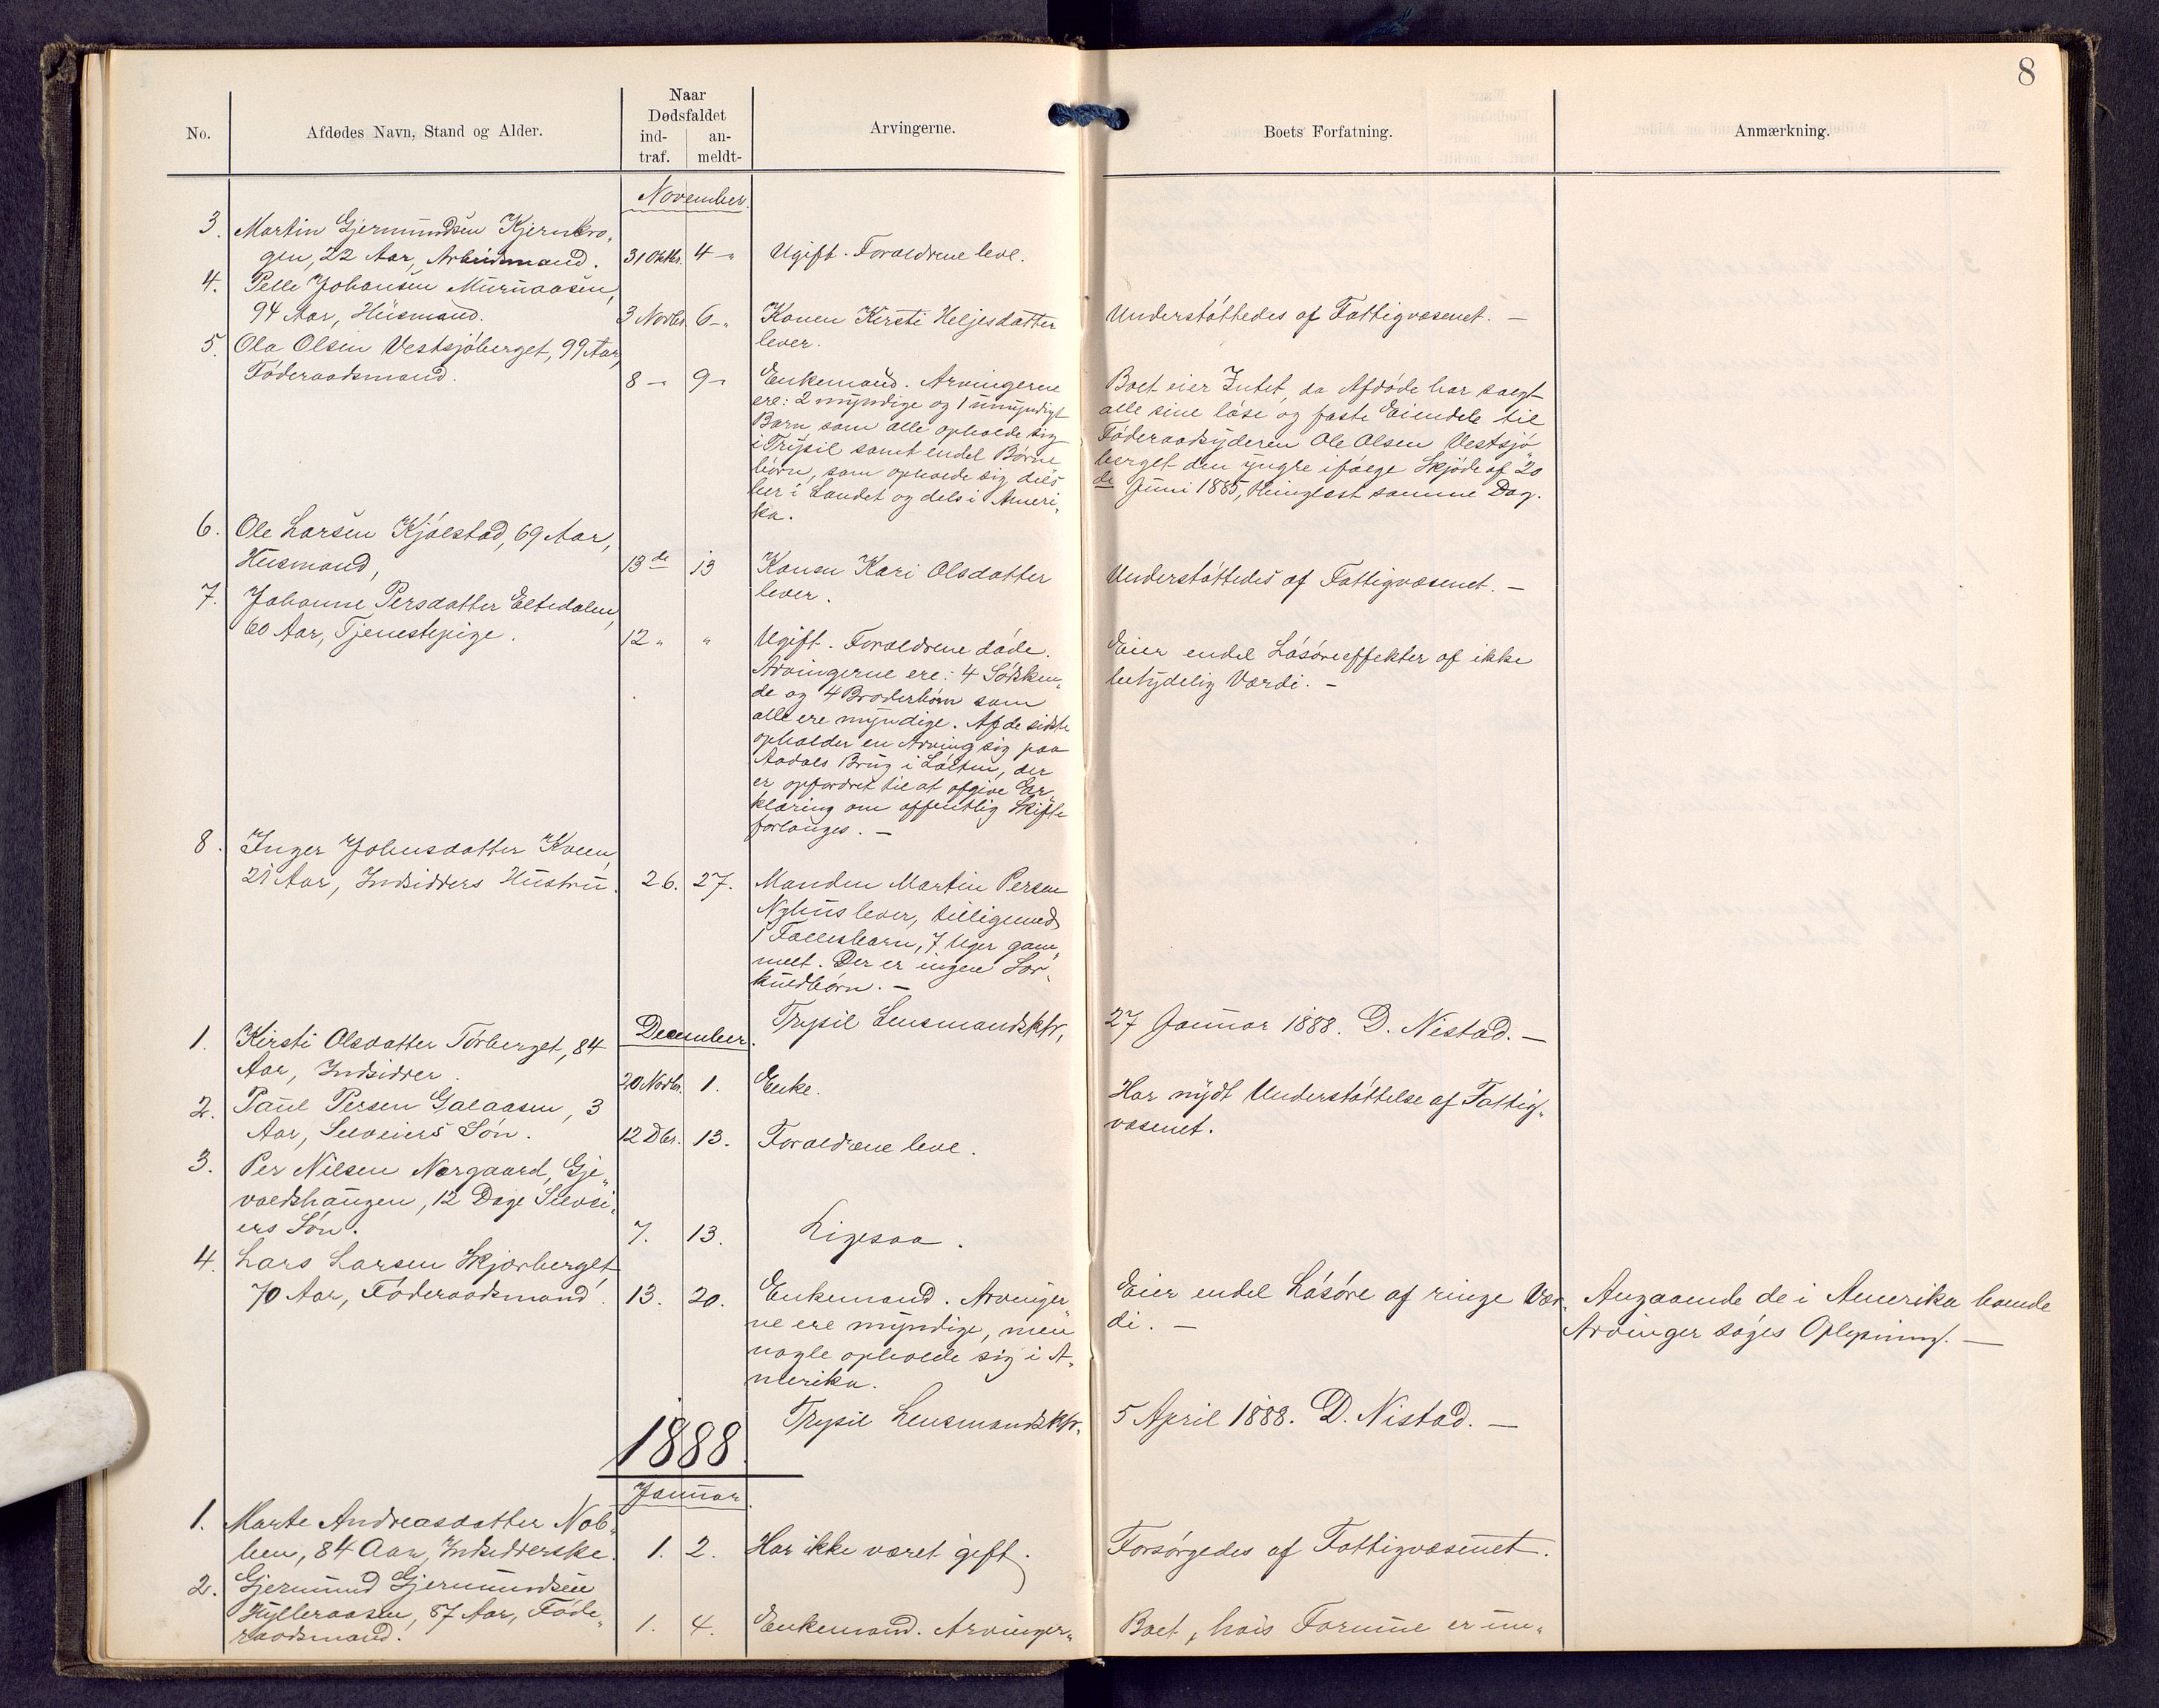 8
No.
Afdødes Navn, Stand og Alder.
Naar
Dødsfaldet
ind-
traf.
an-
meldt-
Arvingerne.
Boets Forfatning.
Anmærkning.
November.
3. Martin Gjermundsen Kjernkro-
gen, 22 Aar, Arbeidsmand. 31 Oktbr. 4 -„ Ugift. Forældrene leve.
4. Pelle Johansen Murnaasen,
94 Aar, Husmand. 3 Novbr. 6 -„ Konen Kirsti Heljesdatter Understøttedes af Fattigvæsenet. -
lever.
5. Ola Olsen Vestsjøberget, 99 Aar,
Føderaadsmand. 8 -„ 9 -„ Enkemand. Arvingerne
ere: 2 myndige og 1 umyndigt
Barn som alle opholde sig
i Trysil samt endel Børne
børn, som opholde sig dels
her i Landet og dels i Ameri-
ka.
Boet eier Intet, da Afdøde har solgt
alle sine løse og faste Eiendele til
Føderaadsyderen Ole Olsen Vestsjø
berget den yngre ifølge Skjøde af 20
de Juni 1885, thinglæst samme Dag.
6. Ole Larsen Kjølstad, 69 Aar,
Husmand, 13de 13 Konen Kari Olsdatter Understøttedes af Fattigvæsenet. -
lever.
7. Johanne Persdatter Eltdalen,
60 Aar, Tjenestepige. 12 „ „ Ugift. Forældrene døde.
Arvingerne ere: 4 Sødsken-
de og 4 Broderbørn som
alle ere myndige. Af de sidste
opholder en Arving sig paa
Aadals Brug i Løiten, der
er opfordret til at afgive Er-
klæring om offentlig Skifte
forlanges. -
Eier endel Løsøreeffekter af ikke
betydelig Værdi. -
8. Inger Johnsdatter Kveen,
21 Aar, Indsidders Hustru. 26. 27. Manden Martin Persen
Nyhus lever, tilligemed
1 Fællesbarn, 7 Uger gam-
melt. Der er ingen Sær-
kuldbørn. -
Trysil Lensmandsktr, 27 Januar 1888. D. Nistad. -
December.
1. Kirsti Olsdatter Tørberget, 84
Aar, Indsidder. 20 Novbr. 1. Enke. Har nydt Understøttelse af Fattig-
væsenet.
2. Paul Persen Galaasen, 3
Aar, Selveiers Søn. 12 Dbr. 13. Forældrene leve.
3. Per Nilsen Nergaard, Gje-
voldshaugen, 12 Dage Selvei-
ers Søn. 7. 13. Ligesaa.
4. Lars Larsen Skjærberget,
70 Aar, Føderaadsmand. 13. 20. Enkemand. Arvinger-
ne ere myndige, men
nogle opholde sig i A-
merika.
Eier endel Løsøre af ringe Vær-
di. -
Angaaende de i Amerika boende
Arvinger søges Oplysning. -
Trysil Lensmandsktr. 5 April 1888. D. Nistad. -
1888.
Januar.
1. Marte Andreasdatter Nob-
ben, 84 Aar, Indsidderske. 1. 2. Har ikke været gift. Forsørgedes af Fattigvæsenet.
2. Gjermund Gjermundsen
Hylleraasen, 87 Aar, Føde-
raadsmand. 1. 4. Enkemand. Arvinger- Boet, hvis Formue er un-